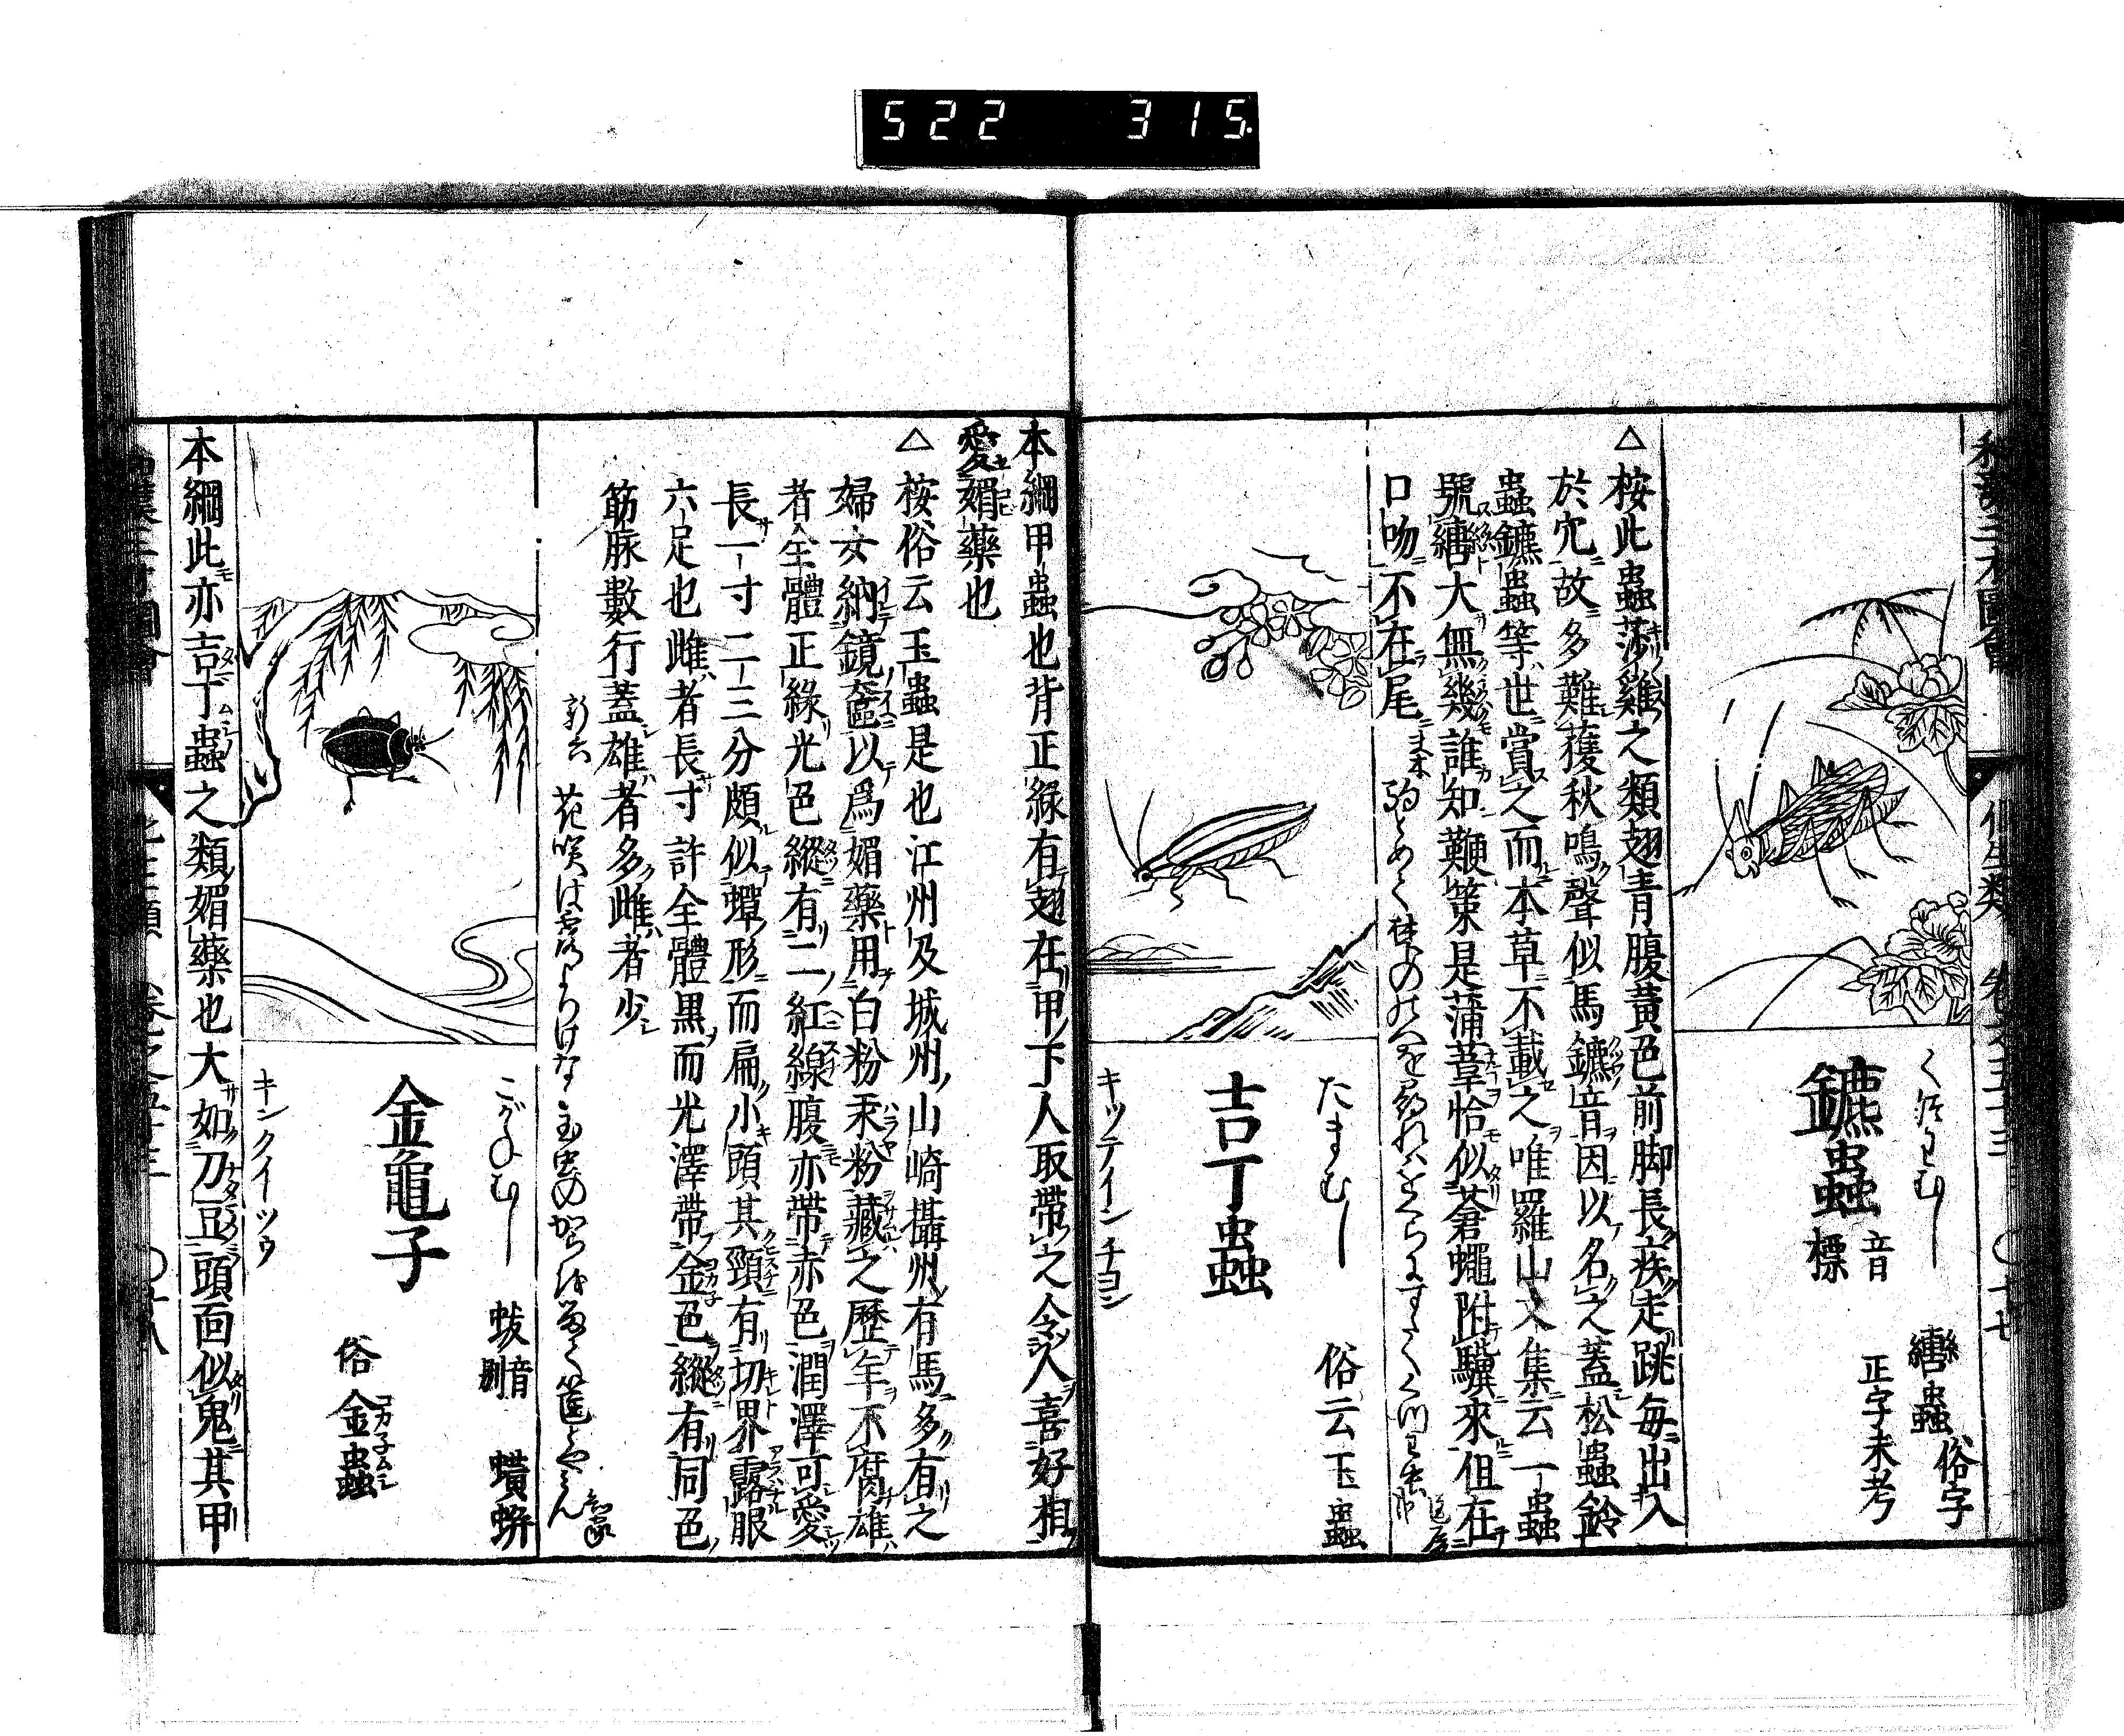 522 315.
和漢三才圖會 化生類 卷之五十三 〇十七
くつわむし
鑣蟲 音標
轡蟲 俗字
正字未考
△ 按此蟲莎雞之類翅青腹黃色前脚長疾走跳每出入
於穴故多難獲秋鳴聲似馬鑣音因以名之蓋松蟲鈴
蟲鑣蟲等世賞之而本草不載之唯羅山文集云一蟲
號轡大無幾誰知鞭策是蒲葦恰似蒼蠅附驥來但在
口吻不在尾
たまむし
吉丁蟲
俗云玉蟲
キッテイン チヨン
本綱甲蟲也背正綠有翅在甲下人取帶之令人喜好相
愛媚藥也
△ 按俗云玉蟲是也江州及城州山崎攝州有馬多有之
婦女納鏡奩以爲媚藥用白粉汞粉藏之歷年不腐雄
者全體正綠光色縱有二紅線腹亦帶赤色潤澤可愛
長一寸二三分頗似蟬形而扁小頭其頸有切界露眼
六足也雌者長寸許全體黑而光澤帶金色縱有同色
筋脉數行蓋雄者多雌者少
こがねむし
金龜子
蛂 音別 蟥蛢
俗 金蟲 コカ子ムシ
キンクイーツウ
本綱此亦吉丁蟲之類媚藥也大如刀豆頭面似鬼其甲
和漢三才圖會 化生類 卷之五十三 〇十八